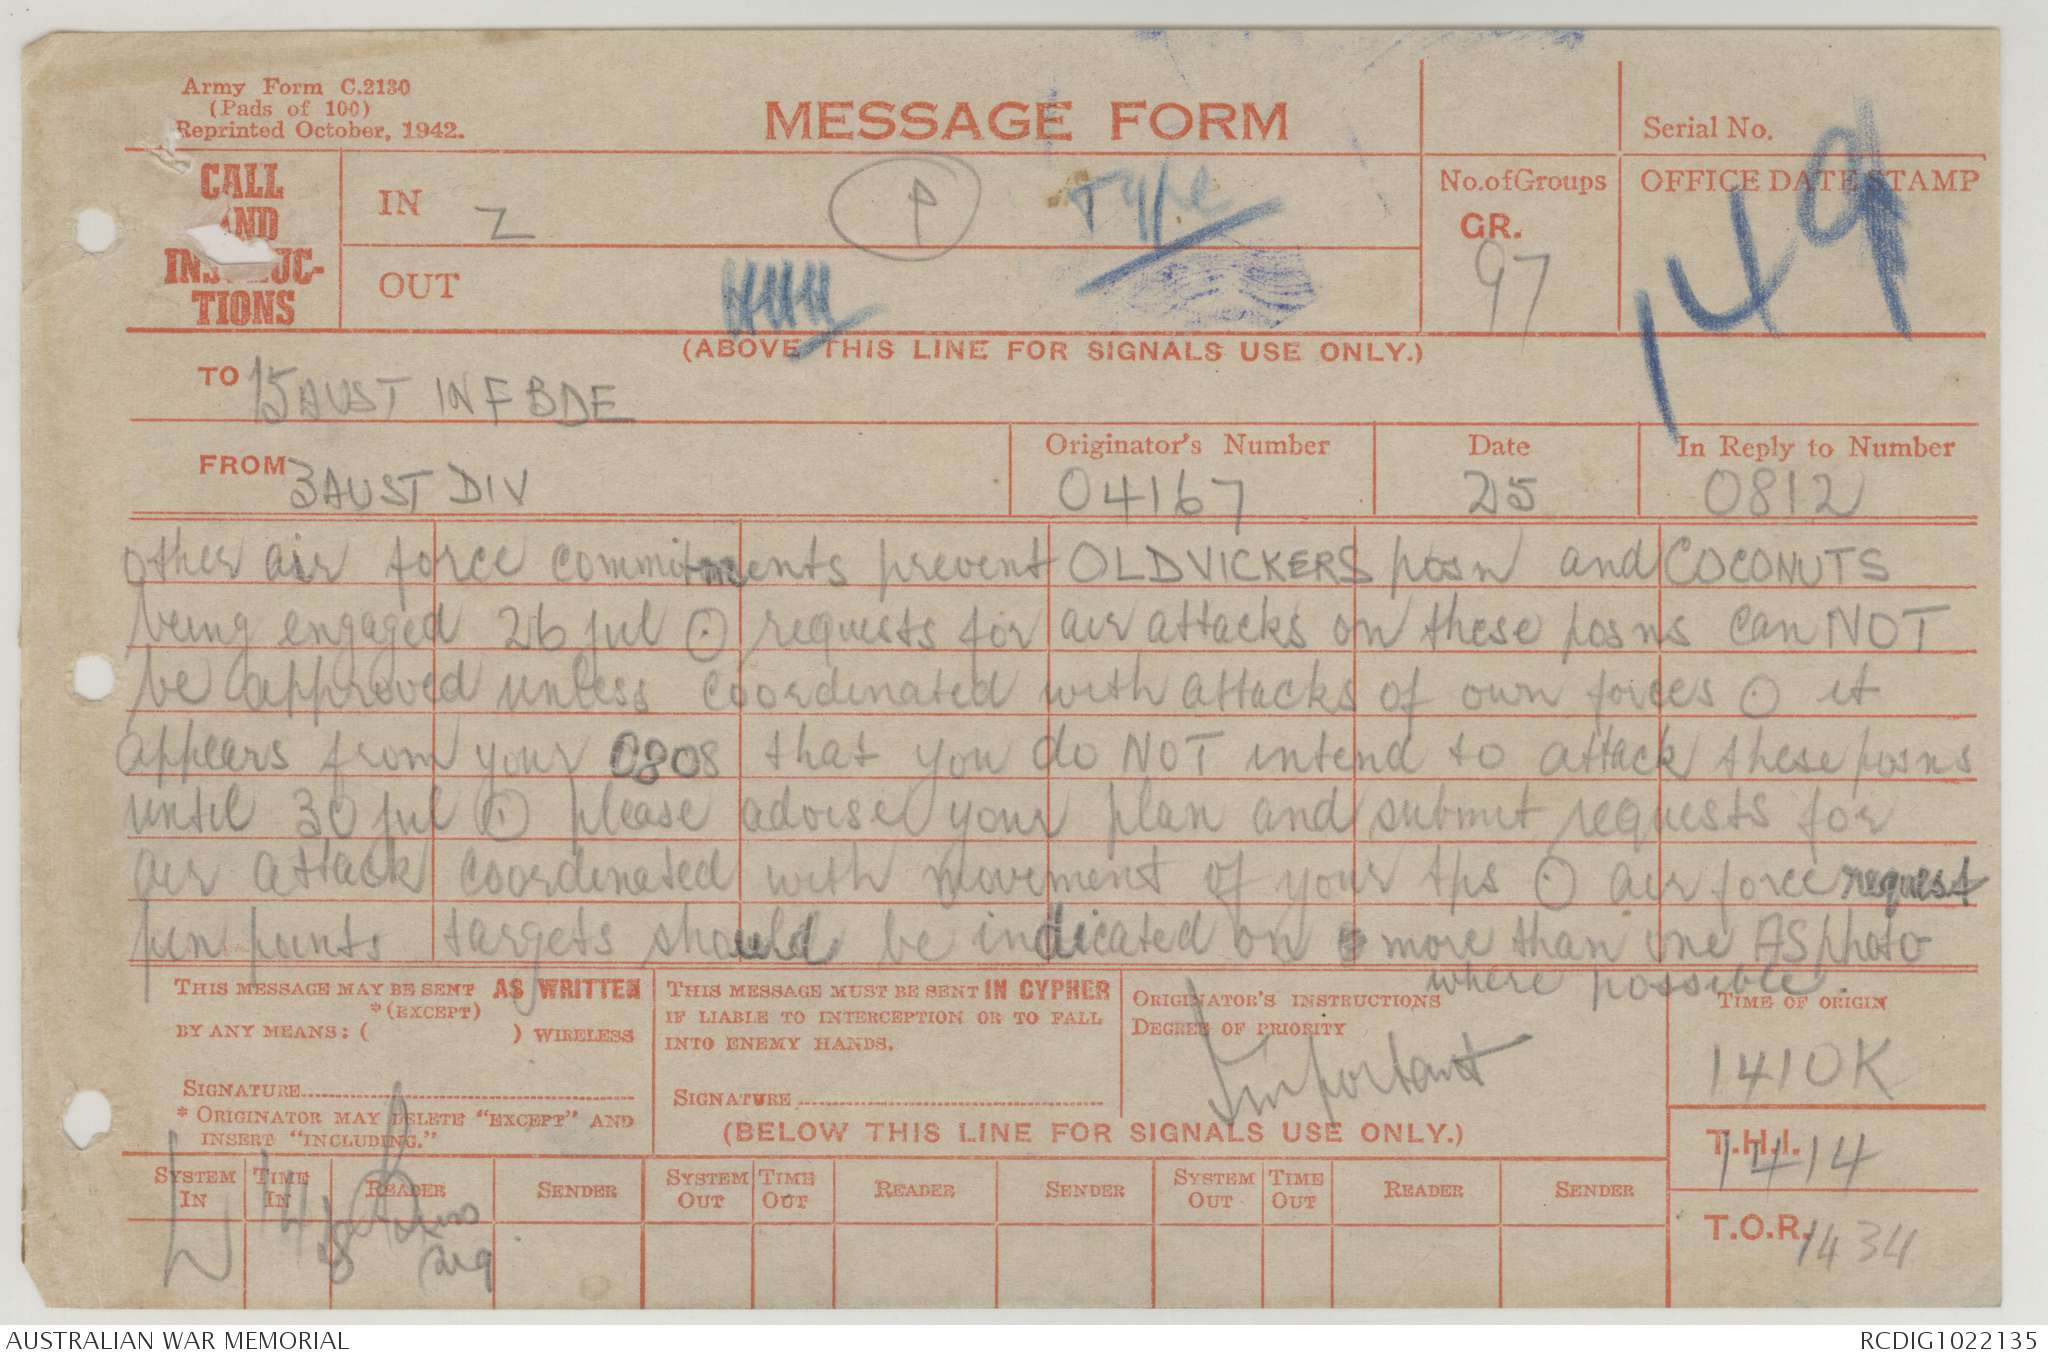 Army Form C.2130
(Pads of 100)
Reprinted October, 1942.
MESSAGE FORM
Serial No.
CALL AND INSTRUC-TIONS
IN Z
P
Type
OUT
No. of Groups
GR.
97
OFFICE DATE STAMP
149
(ABOVE THIS LINE FOR SIGNALS USE ONLY.)
TO 15 AUST INF BDE
FROM 3 AUST DIV
Originator's Number
04167
Date
25
In Reply to Number
0812
other air force commitments prevent OLD VICKERS posn and COCONUTS
being engaged 26 jul ⊙ requests for air attacks on these posns can NOT
be approved unless coordinated with attacks of own forces ⊙ it
appears from your 0808 that you do NOT intend to attack these posns
until 30 jul ⊙ please advise your plan and submit requests for
air attack coordinated with movement of your tps ⊙ air force request
pin points targets should be indicated on more than one AS photo
where possible.
THIS MESSAGE MAY BE SENT AS WRITTEN
*(EXCEPT)
BY ANY MEANS: ( ) WIRELESS
SIGNATURE
* ORIGINATOR MAY DELETE "EXCEPT" AND
INSERT "INCLUDING."
THIS MESSAGE MUST BE SENT IN CYPHER
IF LIABLE TO INTERCEPTION OR TO FALL
INTO ENEMY HANDS.
SIGNATURE
ORIGINATOR'S INSTRUCTIONS
DEGREE OF PRIORITY
Important
TIME OF ORIGIN
1410K
(BELOW THIS LINE FOR SIGNALS USE ONLY.)
T.H.I.
1414
T.O.R. 1434
SYSTEM IN
TIME IN
READER
SENDER
SYSTEM OUT
TIME OUT
READER
SENDER
SYSTEM OUT
TIME OUT
READER
SENDER
AUSTRALIAN WAR MEMORIAL
RCDIG1022135